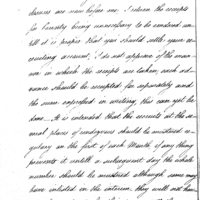 dances are now before me, I return the receipts
for County being unnecessary to be rendered un-
till it is proper that you should settle your re-
cruiting account, I do not approve of the man-
ner in which the receipts are taken, each ad-
vance should be receipted for separately and
the sum expressed in writing, this can yet be
done. It is intended that the recruits at the se-
veral places of rendezvous should be mustered re-
gulary on the first of each Month if any thing
prevents it untill a subsequent day the whole
number should be mustered although some may
have inlisted in the interim. they will not have